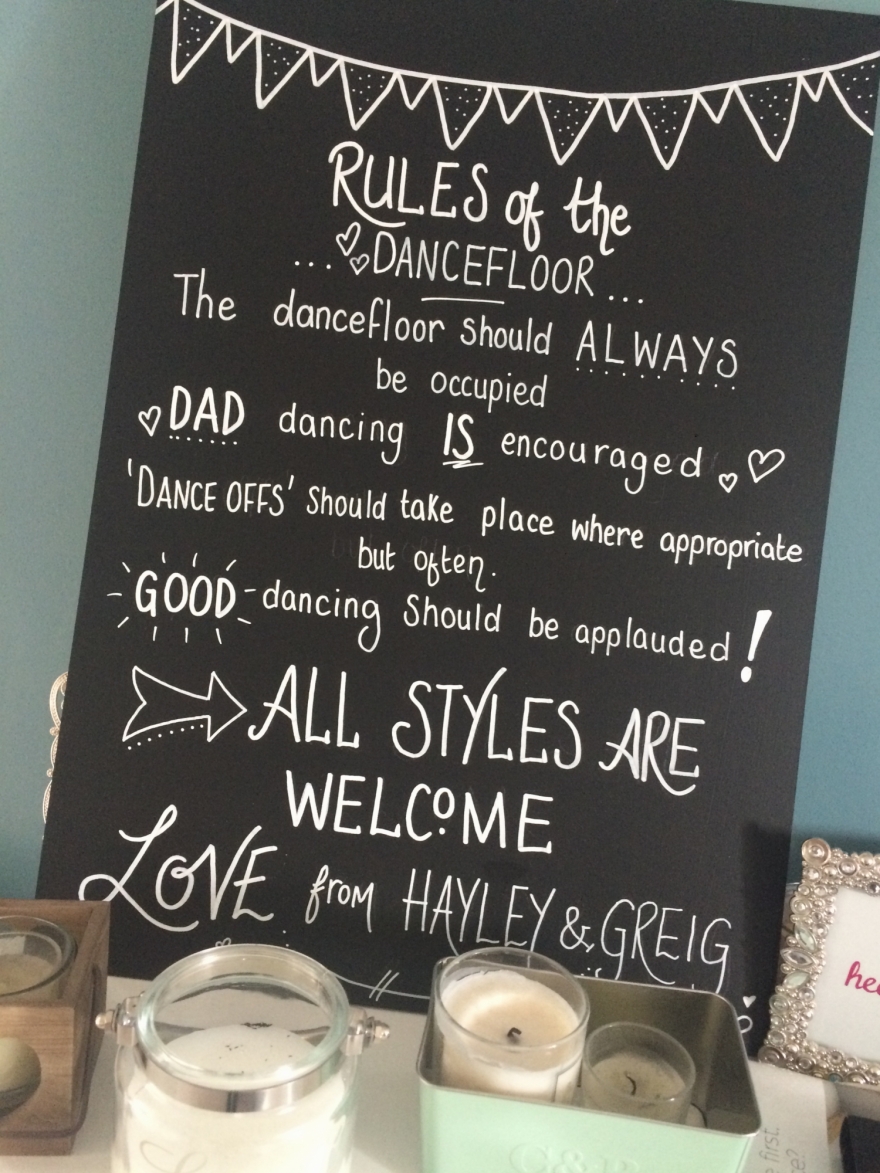 RULES of the
...DANCEFLOOR...
The dancefloor should ALWAYS
be occupied
DAD dancing IS encouraged
'DANCE OFFS' should take place where appropriate
but often.
GOOD dancing should be applauded!
ALL STYLES ARE
WELCOME
LOVE from HAYLEY & GREIG
first.